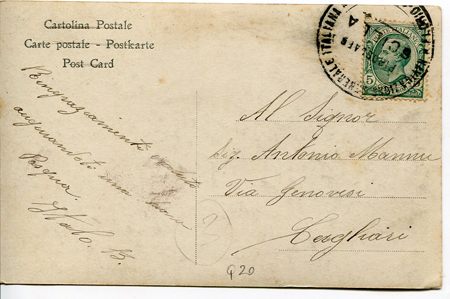 Cartolina Postale
Carte postale - Postkarte
Post Card
Ringraziamenti e saluti
augurandoti una buona
Pasqua.
Italo. B.
Al Signor
Sig. Antonio Mannu
Via Genovesi
Cagliari
5
2
Q 20